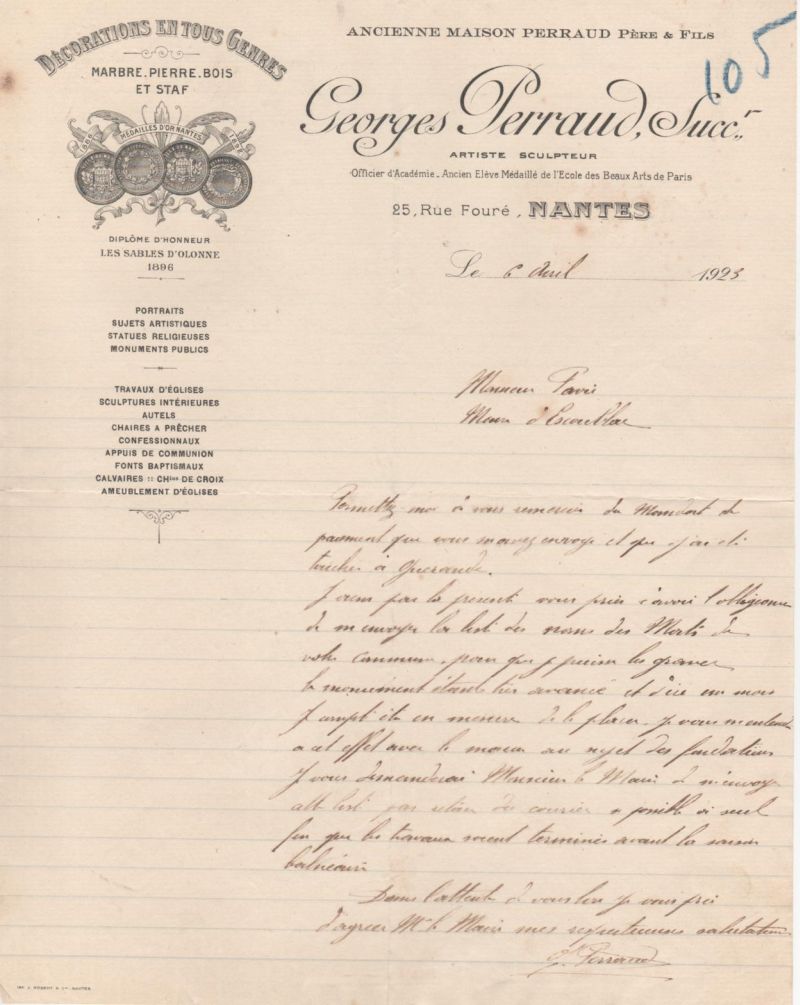 DÉCORATIONS EN TOUS GENRES
MARBRE. PIERRE. BOIS
ET STAF
MÉDAILLES D'OR NANTES
DIPLÔME D'HONNEUR
LES SABLES D'OLONNE
1896
PORTRAITS
SUJETS ARTISTIQUES
STATUES RELIGIEUSES
MONUMENTS PUBLICS
TRAVAUX D'ÉGLISES
SCULPTURES INTÉRIEURES
AUTELS
CHAIRES A PRÊCHER
CONFESSIONNAUX
APPUIS DE COMMUNION
FONTS BAPTISMAUX
CALVAIRES :: CHins DE CROIX
AMEUBLEMENT D'ÉGLISES
ANCIENNE MAISON PERRAUD PÈRE & FILS
105
Georges Perraud, Succr.
ARTISTE SCULPTEUR
Officier d'Académie. Ancien Elève Médaillé de l'Ecole des Beaux Arts de Paris
25, Rue Fouré, NANTES
Le 6 Avril 1923
Monsieur Pavie
Maire d'Escoublac
Permettez moi à vous remercier du Mandat de
paiement que vous m'avez envoyé et que j'ai été
toucher à Guérande.
par la présente vous prier d'avoir l'obligeance
de m'envoyer la liste des noms des Morts de
votre commune, pour que je puisse les graver
le monument étant très avancé et d'ici un mois
en mesure de le placer. je vous
a cet effet avec le maçon au sujet des fondations
Je vous demanderai Monsieur le Maire de m'envoyer
liste par retour du courrier si possible
que les travaux soient terminés avant la saison
balnéaire
Dans l'attente de vous lire je vous prie
d'agréer Mr le Maire mes respectueuses salutations
G. Perraud